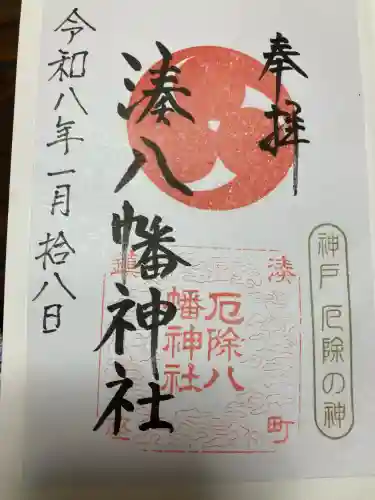 奉拝
湊八幡神社
令和八年一月拾八日
神戸 厄除の神
厄除八
幡神社
湊
町